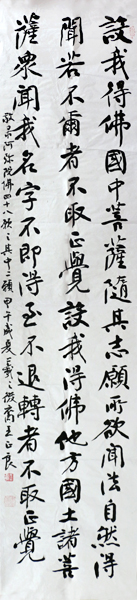 設我得佛國中菩薩隨其志願所欲聞法自然得
聞若不爾者不取正覺設我得佛他方國土諸菩
薩眾聞我名字不即得至不退轉者不取正覺
敬录阿弥陀佛四十八願之其中二願甲午歲夏